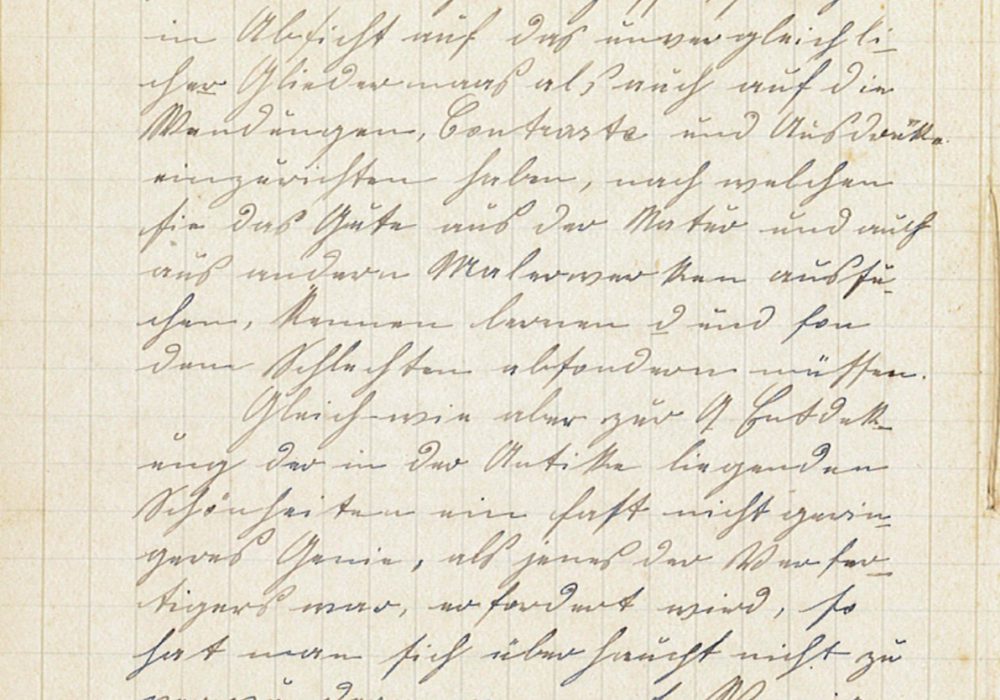 in Absicht auf das unvergleichli-
cher Gliedermaas als auch auf die
Wendungen, Contraste und Ausdrükke
einzurichten haben, nach welchen
sie das Gute aus der Natur und auch
aus andern Malerwerken aussu-
chen, kennen lernen d und son
dem Schlechten absondern müssen.
Gleich wie aber zur Entdek-
ung der in der Antike liegenden
Schönheiten ein fast nicht gerin-
geres Genie, als jenes der Verfer-
tigers war, erfordert wird, so
hat man sich überhaucht nicht zu